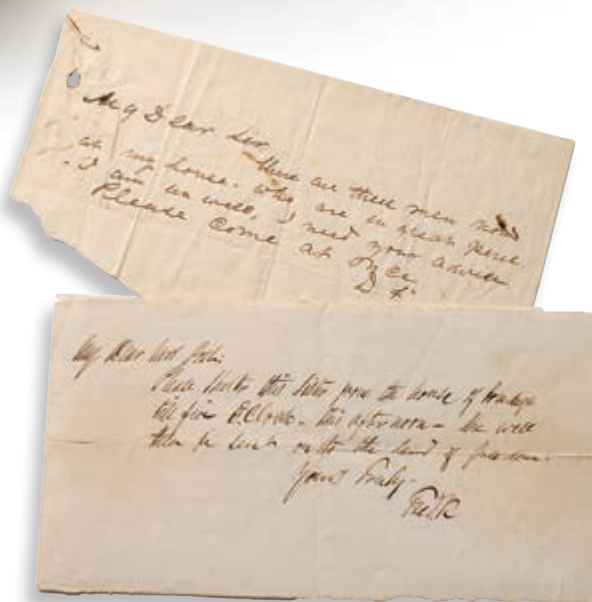 My Dear Sir
There are three men now
at my house. who are in great peril.
I am unwell, I need your advice
Please come at once
D. F.
My Dear Mrs Post:
Please shelter this sister from the house of bondage
till five O'Clock - this afternoon - She will
then be sent on to the land of freedom.
Yours Truly -
Fredk